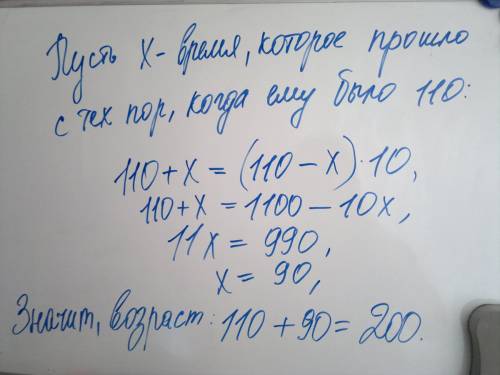 Пусть х - время, которое прошло
с тех пор, когда ему было 110:
110 + х = (110 - х) · 10,
110 + х = 1100 - 10х,
11х = 990,
х = 90,
Значит, возраст: 110 + 90 = 200.